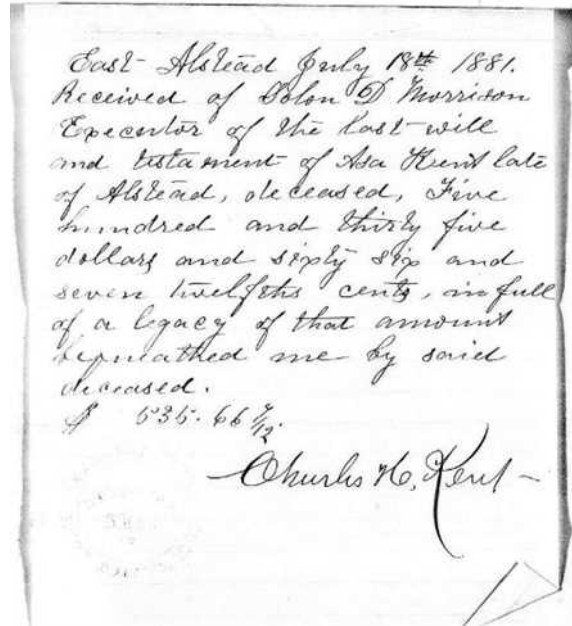 East Alstead July 18th 1881.
Received of Solon D Morrison
Executor of the last will
and testament of Asa Kent late
of Alstead, deceased, Five
hundred and thirty five
dollars and sixty six and
seven twelfths cents, in full
of a legacy of that amount
bequeathed me by said
deceased.
$ 535.66 7/12
Charles H. Kent